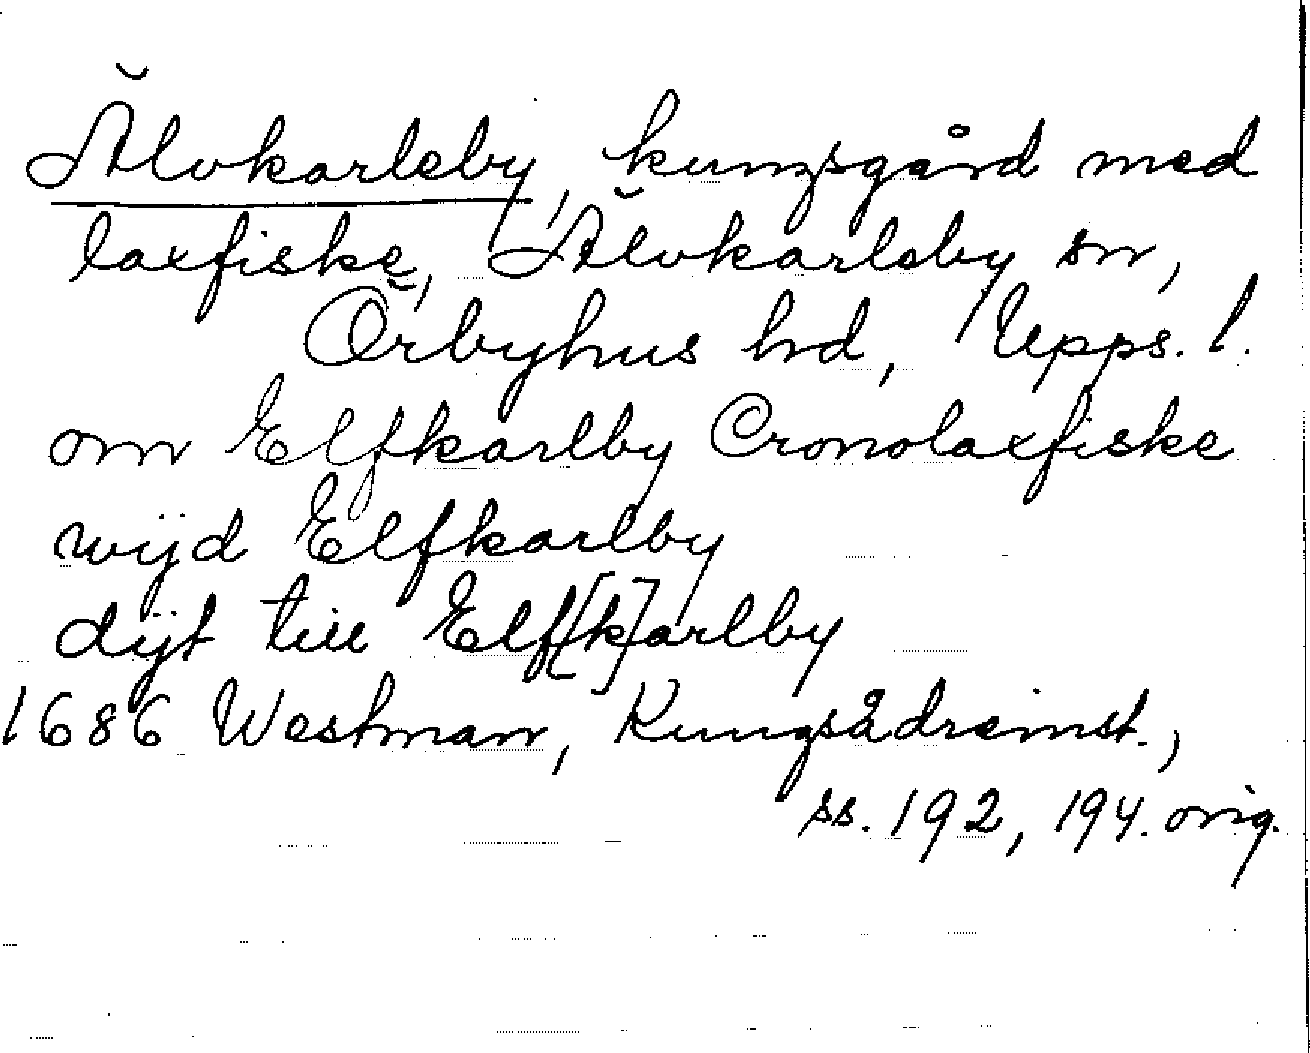 Älvkarleby, kungsgård med
laxfiske, Älvkarleby sn,
Örbyhus hd, Upps. l.
om Elfkarlby Cronolaxfiske
wijd Elfkarlby
dijt till Elf[k]arlby
1686 Westman, Kungsådreinst.,
ss. 192, 194. orig.